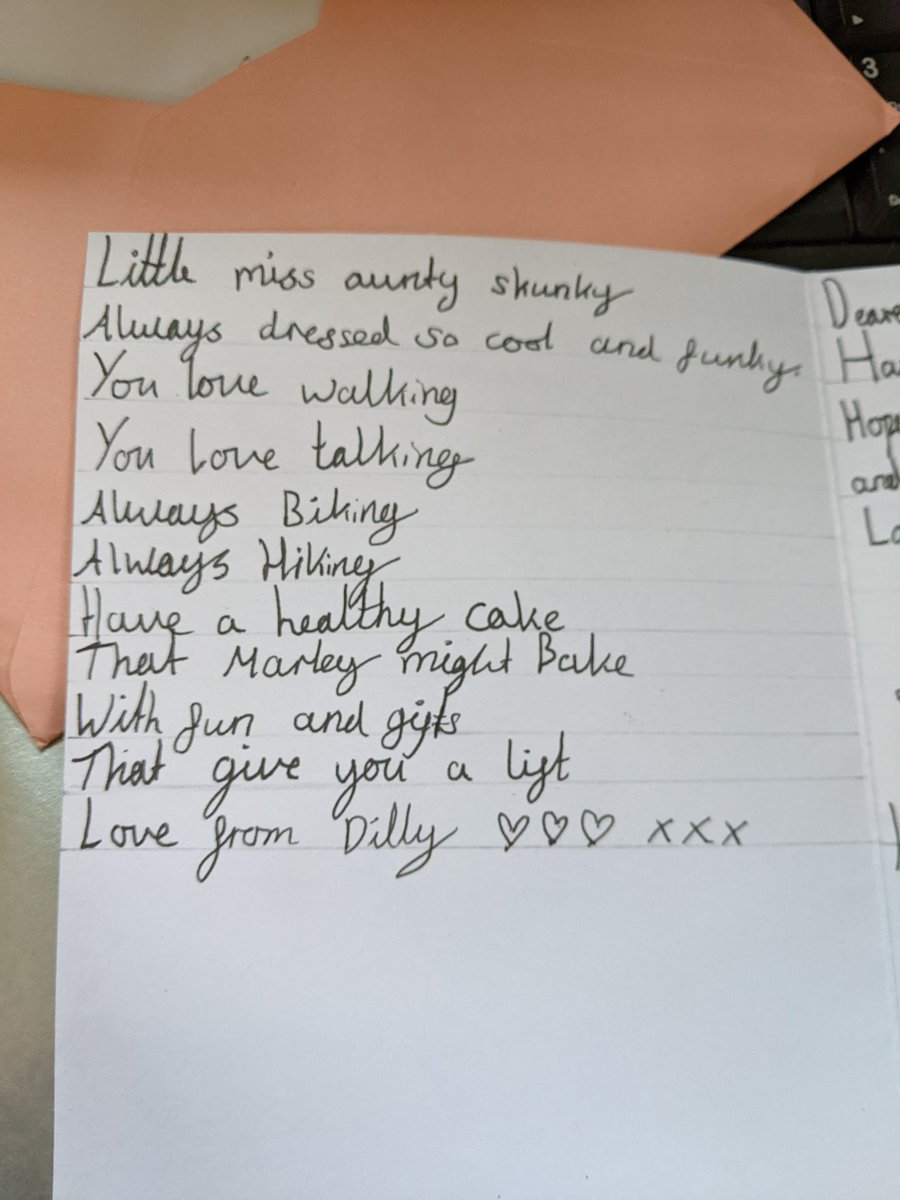 Little miss aunty skunky
Always dressed so cool and funky.
You love walking
You love talking
Always Biking
Always Hiking
Have a healthy cake
That Marley might Bake
With fun and gifts
That give you a lift
Love from Dilly ♡♡♡ xxx
and
3